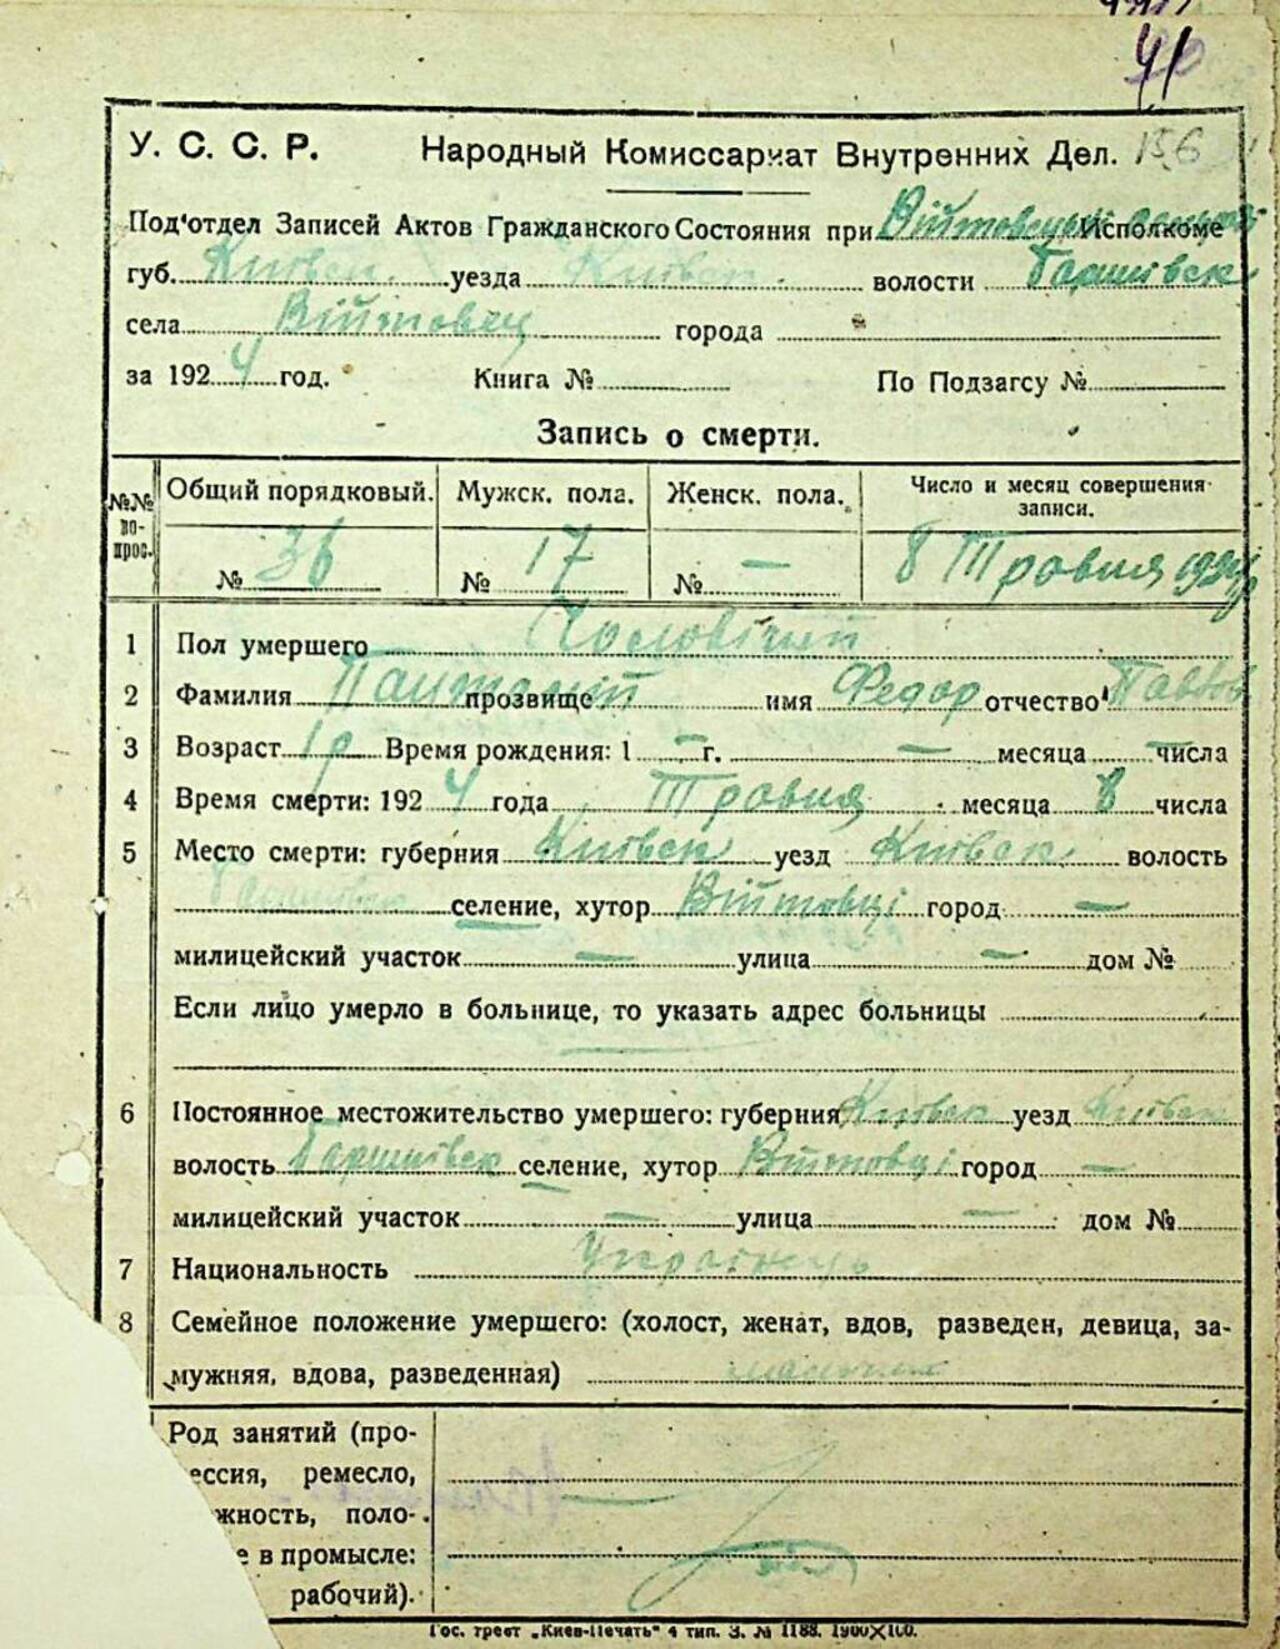 41
У. С. С. Р. Народный Комиссариат Внутренних Дел. 156
Под'отдел Записей Актов Гражданского Состояния при Війтовецькій Исполкоме
губ. Київск. уезда Київск. волости
села Війтовец города
за 1924 год. Книга № По Подзагсу №
Запись о смерти.
№№ вопрос. Общий порядковый. Мужск. пола. Женск. пола. Число и месяц совершения записи.
№ 36 № 17 № — 8 Травня 1924 р
1 Пол умершего Чоловічий
2 Фамилия прозвище имя Федор отчество Павлов
3 Возраст 1 р Время рождения: 1 — г. — месяца — числа
4 Время смерти: 1924 года Травня месяца 8 числа
5 Место смерти: губерния Київск уезд Київск. волость
селение, хутор Війтовці город —
милицейский участок — улица — дом №
Если лицо умерло в больнице, то указать адрес больницы
6 Постоянное местожительство умершего: губерния Київск уезд Київск
волость селение, хутор Війтовці город —
милицейский участок — улица — дом №
7 Национальность Українець
8 Семейное положение умершего: (холост, женат, вдов, разведен, девица, за-
мужняя, вдова, разведенная)
Род занятий (про-
ессия, ремесло,
жность, поло-
е в промысле:
рабочий).
Гос. трест „Киев-Печать" 4 тип. З. № 1188. 1900×100.